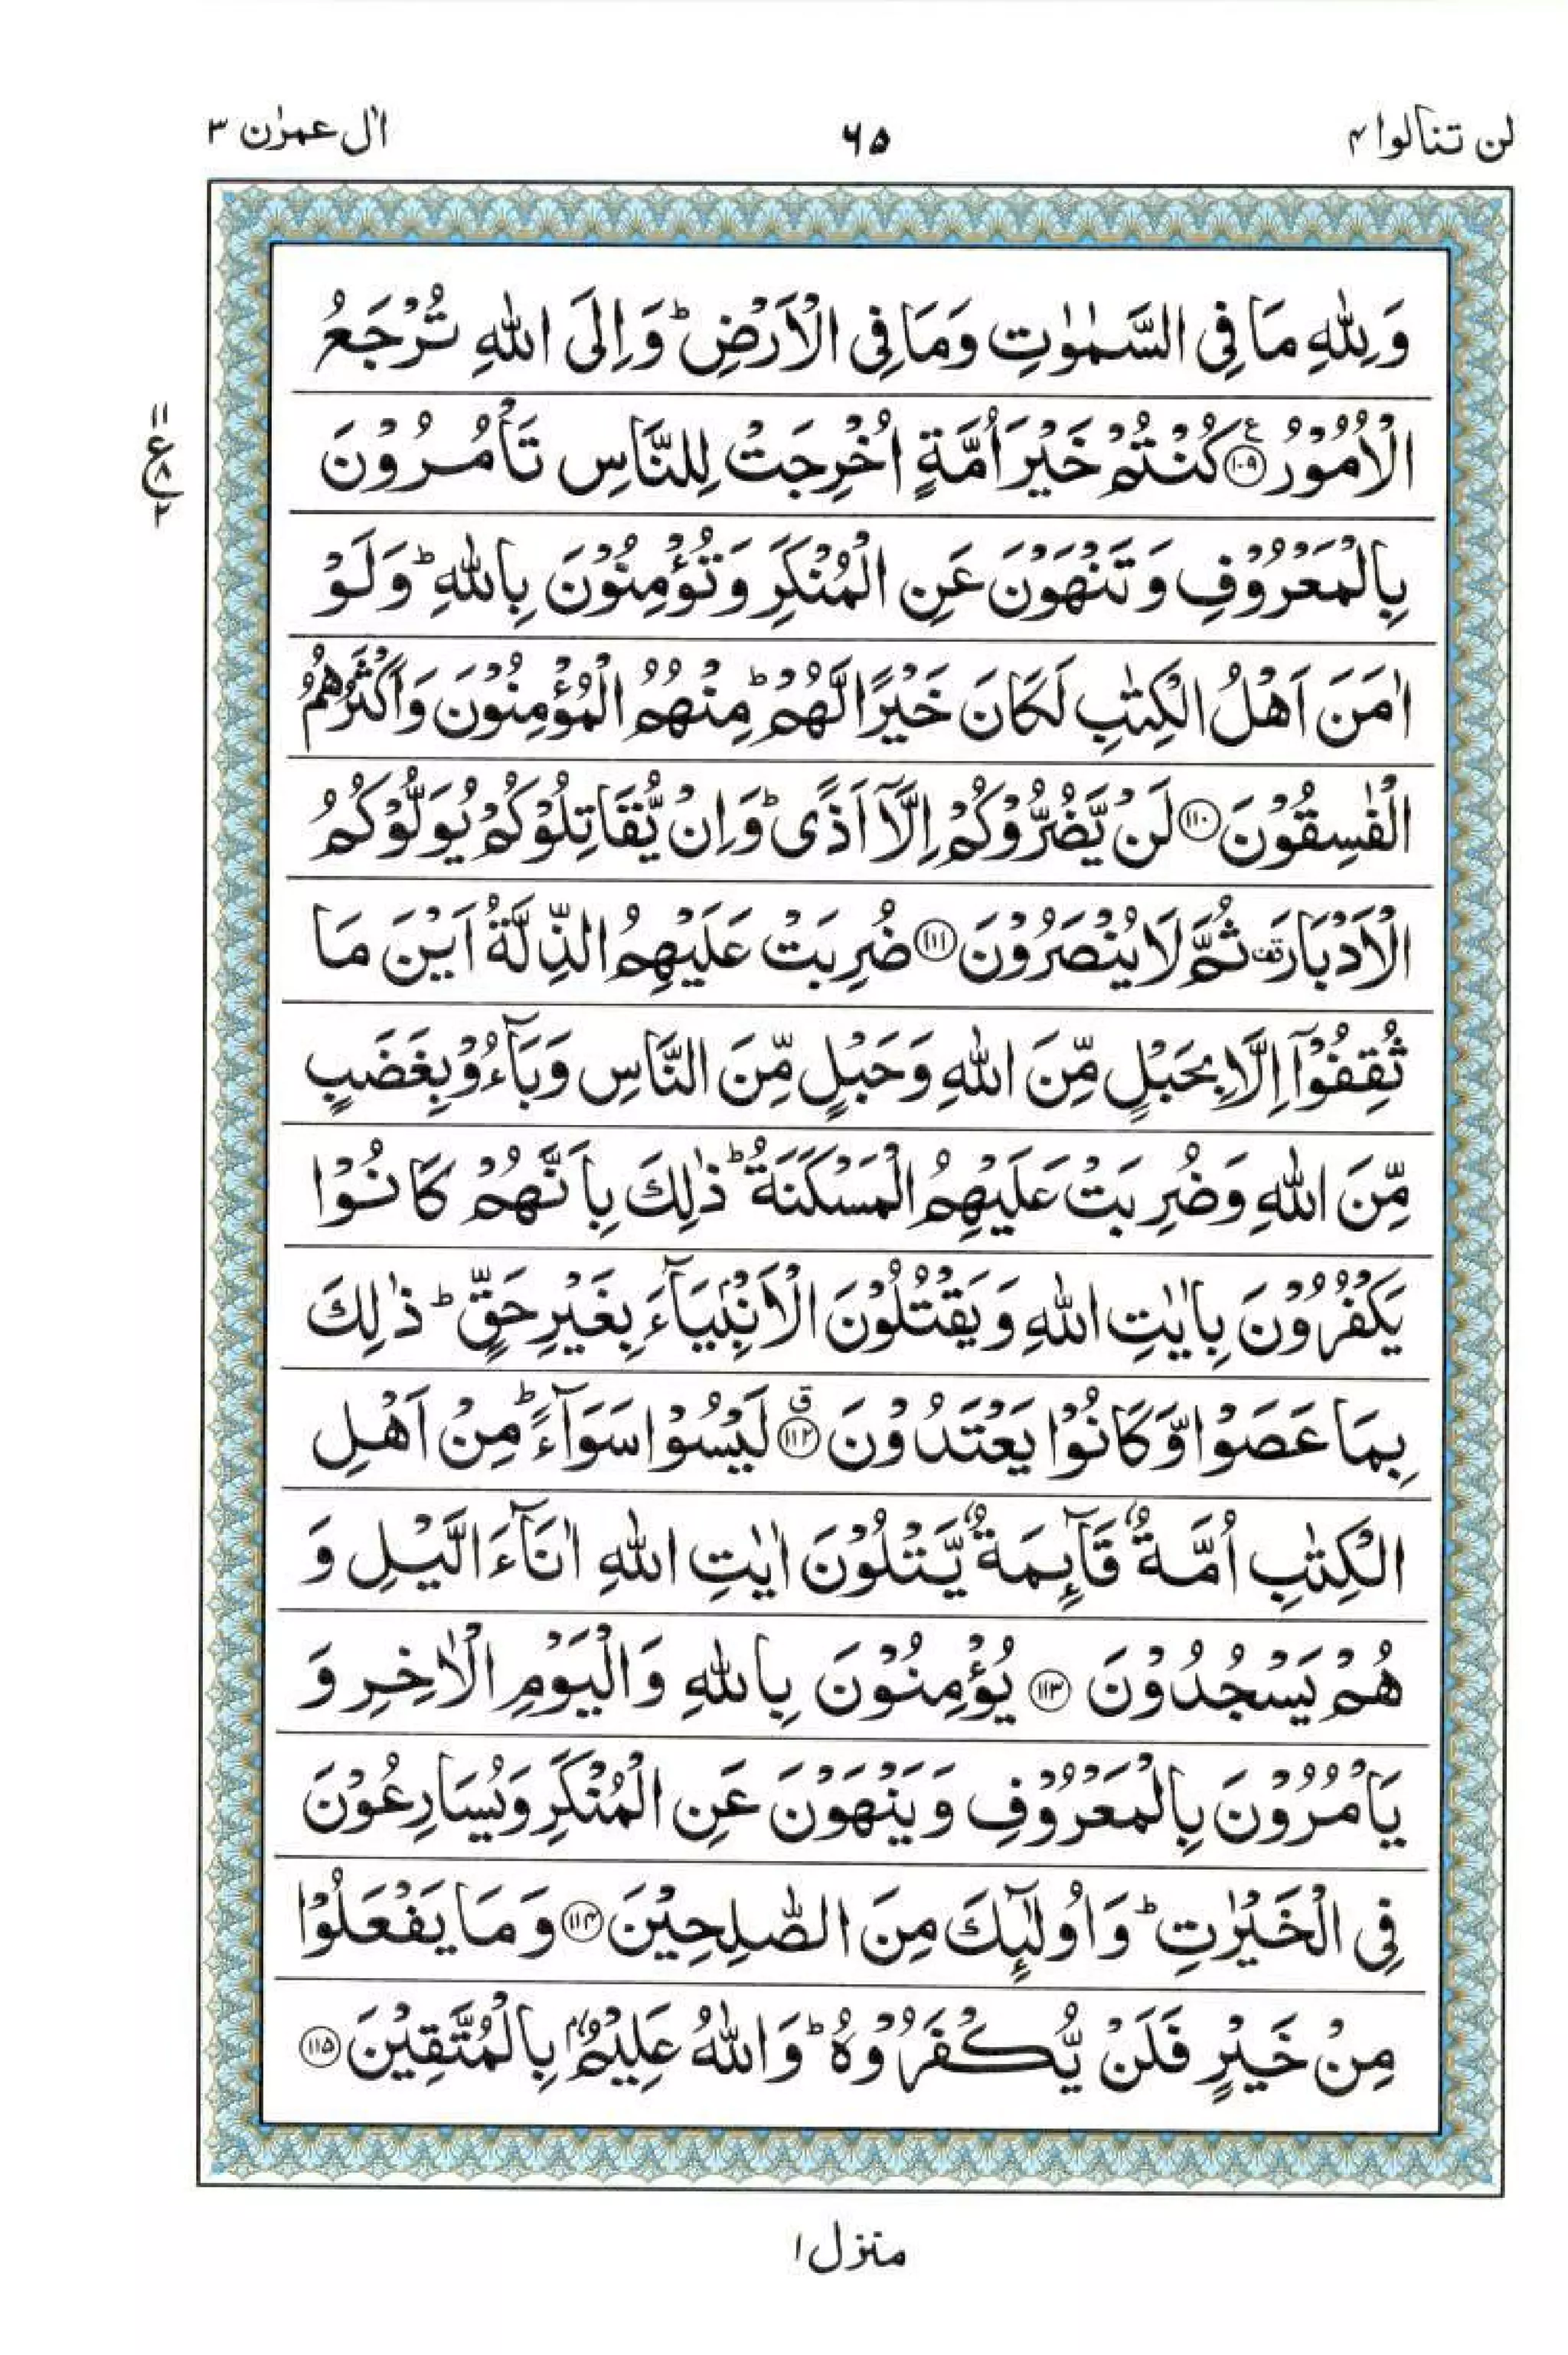 لن تنالوا ۴
۶۵
اٰل عمرٰن ۳
وَلِلّٰهِ مَا فِی السَّمٰوٰتِ وَمَا فِی الْاَرْضِ ؕ وَاِلَی اللّٰهِ تُرْجَعُ
الْاُمُوْرُ ۧ﴿۱۰۹﴾ كُنْتُمْ خَیْرَ اُمَّةٍ اُخْرِجَتْ لِلنَّاسِ تَاْمُرُوْنَ
۱۱
ع
۸
۲
بِالْمَعْرُوْفِ وَتَنْهَوْنَ عَنِ الْمُنْكَرِ وَتُؤْمِنُوْنَ بِاللّٰهِ ؕ وَلَوْ
اٰمَنَ اَهْلُ الْكِتٰبِ لَكَانَ خَیْرًا لَّهُمْ ؕ مِنْهُمُ الْمُؤْمِنُوْنَ وَاَكْثَرُهُمُ
الْفٰسِقُوْنَ ﴿۱۱۰﴾ لَنْ یَّضُرُّوْكُمْ اِلَّاۤ اَذًی ؕ وَاِنْ یُّقَاتِلُوْكُمْ یُوَلُّوْكُمُ
الْاَدْبَارَ ۫ ثُمَّ لَا یُنْصَرُوْنَ ﴿۱۱۱﴾ ضُرِبَتْ عَلَیْهِمُ الذِّلَّةُ اَیْنَ مَا
ثُقِفُوْۤا اِلَّا بِحَبْلٍ مِّنَ اللّٰهِ وَحَبْلٍ مِّنَ النَّاسِ وَبَآءُوْ بِغَضَبٍ
مِّنَ اللّٰهِ وَضُرِبَتْ عَلَیْهِمُ الْمَسْكَنَةُ ؕ ذٰلِكَ بِاَنَّهُمْ كَانُوْا
یَكْفُرُوْنَ بِاٰیٰتِ اللّٰهِ وَیَقْتُلُوْنَ الْاَنْۢبِیَآءَ بِغَیْرِ حَقٍّ ؕ ذٰلِكَ
بِمَا عَصَوْا وَّكَانُوْا یَعْتَدُوْنَ ۗ﴿۱۱۲﴾ لَیْسُوْا سَوَآءً ؕ مِنْ اَهْلِ
الْكِتٰبِ اُمَّةٌ قَآىِٕمَةٌ یَّتْلُوْنَ اٰیٰتِ اللّٰهِ اٰنَآءَ الَّیْلِ وَ
هُمْ یَسْجُدُوْنَ ﴿۱۱۳﴾ یُؤْمِنُوْنَ بِاللّٰهِ وَالْیَوْمِ الْاٰخِرِ وَ
یَاْمُرُوْنَ بِالْمَعْرُوْفِ وَیَنْهَوْنَ عَنِ الْمُنْكَرِ وَیُسَارِعُوْنَ
فِی الْخَیْرٰتِ ؕ وَاُولٰٓىِٕكَ مِنَ الصّٰلِحِیْنَ ﴿۱۱۴﴾ وَمَا یَفْعَلُوْا
مِنْ خَیْرٍ فَلَنْ یُّكْفَرُوْهُ ؕ وَاللّٰهُ عَلِیْمٌۢ بِالْمُتَّقِیْنَ ﴿۱۱۵﴾
منزل ۱